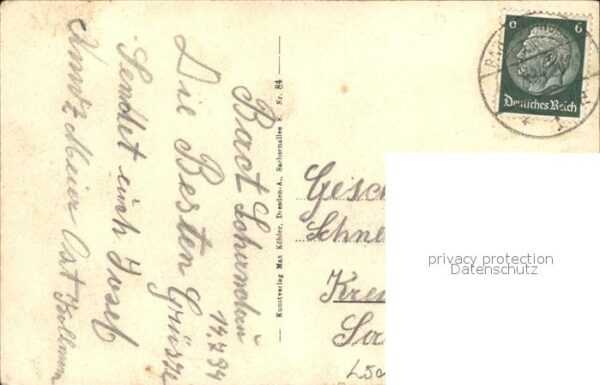 Bact Schandau
14.7.34
Die Besten Grüsse
Sendet euch Josef
Meier
Kunstverlag Max Köhler, Dresden-A., Sachsenallee 8. Nr. 84
6 6
Deutsches Reich
Gesch
Schne
Kre
privacy protection
Datenschutz